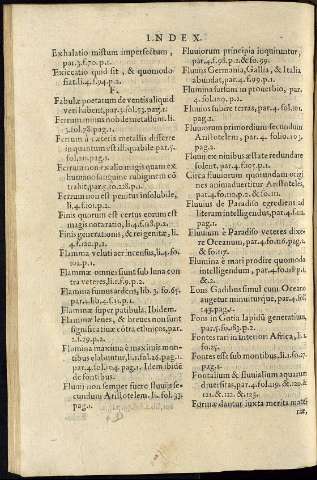 INDEX.
Exhalatio mistum imperfectum,
par.3.f.70.p.1.
Exiccatio quid sit, & quomodo
fiat.li.4.f.94.p.2.
F.
Fabulæ poetarum de ventis aliquid
veri habent,par.5.fol.53.pag.1.
Ferrum minus nobile metallum.li.
3.fol.78.pag.1.
Ferrum à cæteris metallis differre
inquantum est illiquabile par.5.
fol.
Ferrum non ex alio magis quam ex
humano sanguine rubiginem cō
trahit,par.5.fo.128.p.1.
Ferrum non est penitus insolubile,
li.4.f.101.p.2.
Finis quorum est certus eorum est
magis notaratio,li.4.f.118.p.2.
Finis generationis, & rei genitæ, li.
4.f.120.p.1.
Flamma veluti aer incensus,li.4.fo.
102.p.1.
Flammæ omnes fiunt sub luna con
tra veteres,li.1.f.9.p.2.
Flamma fumus ardens, lib. 3. fo.65.
par.2.lib.4.f.11.p.1.
Flammæ super patibula, Ibidem.
Flammæ leues, & breues non sunt
significatiuæ cōtra ethnicos,par.
2.f.29.p.2.
Flamma maxima è maximis mon-
tibus elabuntur,li.1.fol.26.pag.1.
par.4.fol.104.pag.1. Idem ibidē
de fontibus.
Flumē non semper fuere fluuij se-
cundum Aristotelem. li. fol. 33.
pag.1.
Fluuiorum principia inquiruntur,
par.4.f.98.p.2.& fo.99.
Fluuius Germania,Gallia, & Italia
abundat,par.4.f.99.p.1.
Flumina sursum in prouerbio, par.
4.fol.109.p.2.
Fluuius subire terras, par.4. fol.101.
pag.1.
Fluuiorum primordium secundum
Aristotelem, par. 4. folio.103.
pag.1.
Fluuij ex niuibus æstate redundare
solent,par.4.f.107.p.1.
Circa fluuiorum quorundam origi
nes animaduertitur Aristoteles,
par.4.fo.110.p.2.& fo.111.
Fluuius de Paradiso egredient ad
literam intelligendus,par.4.f.112.
pag.1.
Fluuium è Paradiso veteres dixe-
re Oceanum, par.4.fo.116.pag.1.
& fo.117.
Flumina è mari prodire quomodo
intelligendum , par.4.fo.118.p.1.
& 2.
Fons Gadibus simul cum Oceano
augetur minuiturque, par.4.fol.
143.pag.1.
Fons in Gotia lapidū generatiuus,
par.5.fo.83.p.2.
Fontes rari in interiori Africa, li.1.
fo.25.
Fontes est sub montibus, li.1.fo.27.
pag.1.
Fontalium & fluuialium aquarum
diuersitas,par.4.fol.119.&.120.&
121.&.122.&.123.
Formæ dantur iuxta merita mate-
riæ,